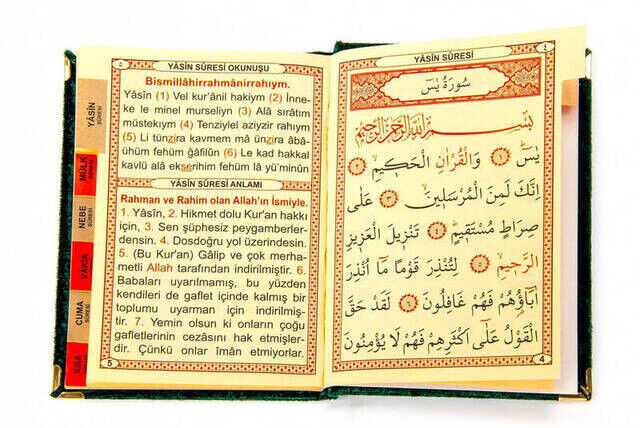 YÂSİN SÛRESİ OKUNUŞU
٥
Bismillâhirrahmânirrahıym.
Yâsîn (1) Vel kur'ânil hakiym (2) İnne-
ke le minel murseliyn (3) Alâ sırâtım
müstekıym (4) Tenziylel aziyzir rahıym
(5) Li tünzira kavmem mâ ünzira âbâ-
ühüm fehüm ğâfilûn (6) Le kad hakkal
kavlü alâ ekserihim fehüm lâ yü'minûn
YÂSİN SÛRESİ ANLAMI
Rahman ve Rahim olan Allah'ın İsmiyle.
1. Yâsîn, 2. Hikmet dolu Kur'an hakkı
için, 3. Sen şüphesiz peygamberler-
densin. 4. Dosdoğru yol üzerindesin.
5. (Bu Kur'an) Gâlip ve çok merha-
metli Allah tarafından indirilmiştir. 6.
Babaları uyarılmamış, bu yüzden
kendileri de gaflet içinde kalmış bir
toplumu uyarman için indirilmiş-
tir. 7. Yemin olsun ki onların çoğu
gafletlerinin cezasını hak etmişler-
dir. Çünkü onlar îmân etmiyorlar.
5
YÂSİN
SÛRESİ
MÜLK
SÛRESİ
NEBE
SÛRESİ
VÂKIA
CUMA
SÛRESİ
KISA
YÂSİN SÛRESİ
٤
سُورَةُ يٰسٓ
بِسْمِ اللّٰهِ الرَّحْمٰنِ الرَّحِيمِ
يٰسٓ ﴿١﴾ وَالْقُرْاٰنِ الْحَكِيمِ ﴿٢﴾
اِنَّكَ لَمِنَ الْمُرْسَلِينَ ﴿٣﴾ عَلٰى
صِرَاطٍ مُسْتَقِيمٍ ﴿٤﴾ تَنْزِيلَ الْعَزِيزِ
الرَّحِيمِ ﴿٥﴾ لِتُنْذِرَ قَوْمًا مَٓا اُنْذِرَ
اٰبَٓاؤُهُمْ فَهُمْ غَافِلُونَ ﴿٦﴾ لَقَدْ حَقَّ
الْقَوْلُ عَلٰٓى اَكْثَرِهِمْ فَهُمْ لَا يُؤْمِنُونَ
4